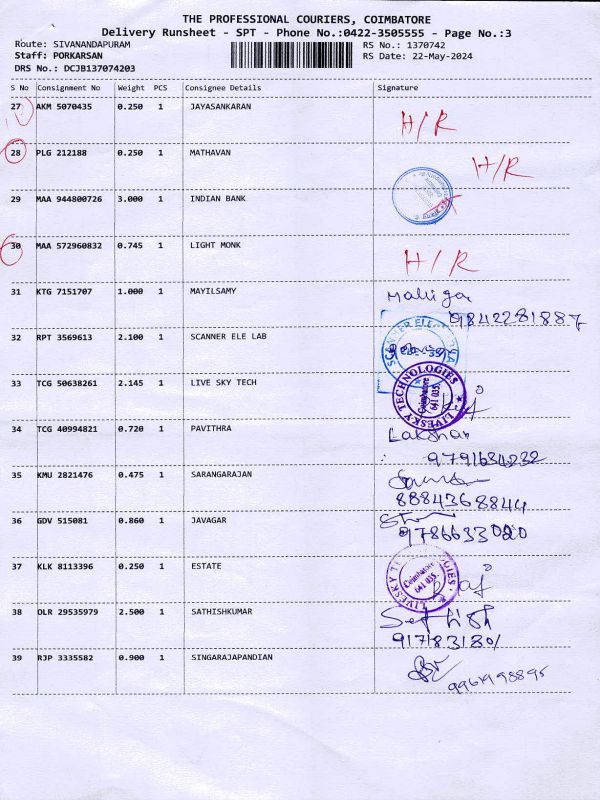 THE PROFESSIONAL COURIERS, COIMBATORE
Delivery Runsheet - SPT - Phone No.:0422-3505555 - Page No.:3
Route: SIVANANDAPURAM RS No.: 1370742
Staff: PORKARSAN RS Date: 22-May-2024
DRS No.: DCJB137074203
S No Consignment No Weight PCS Consignee Details Signature
27 AKM 5070435 0.250 1 JAYASANKARAN
H/R
28 PLG 212188 0.250 1 MATHAVAN
H/R
29 MAA 944800726 3.000 1 INDIAN BANK
30 MAA 572960832 0.745 1 LIGHT MONK
H/R
31 KTG 7151707 1.000 1 MAYILSAMY
9842281887
32 RPT 3569613 2.100 1 SCANNER ELE LAB
33 TCG 50638261 2.145 1 LIVE SKY TECH
LIVESKY TECHNOLOGIES
Coimbatore
641 035.
34 TCG 40994821 0.720 1 PAVITHRA
Lakshan
35 KMU 2821476 0.475 1 SARANGARAJAN
8884368844
36 GDV 515081 0.860 1 JAVAGAR
9786633020
37 KLK 8113396 0.250 1 ESTATE
Coimbatore
641 035.
38 OLR 29535979 2.500 1 SATHISHKUMAR
39 RJP 3335582 0.900 1 SINGARAJAPANDIAN